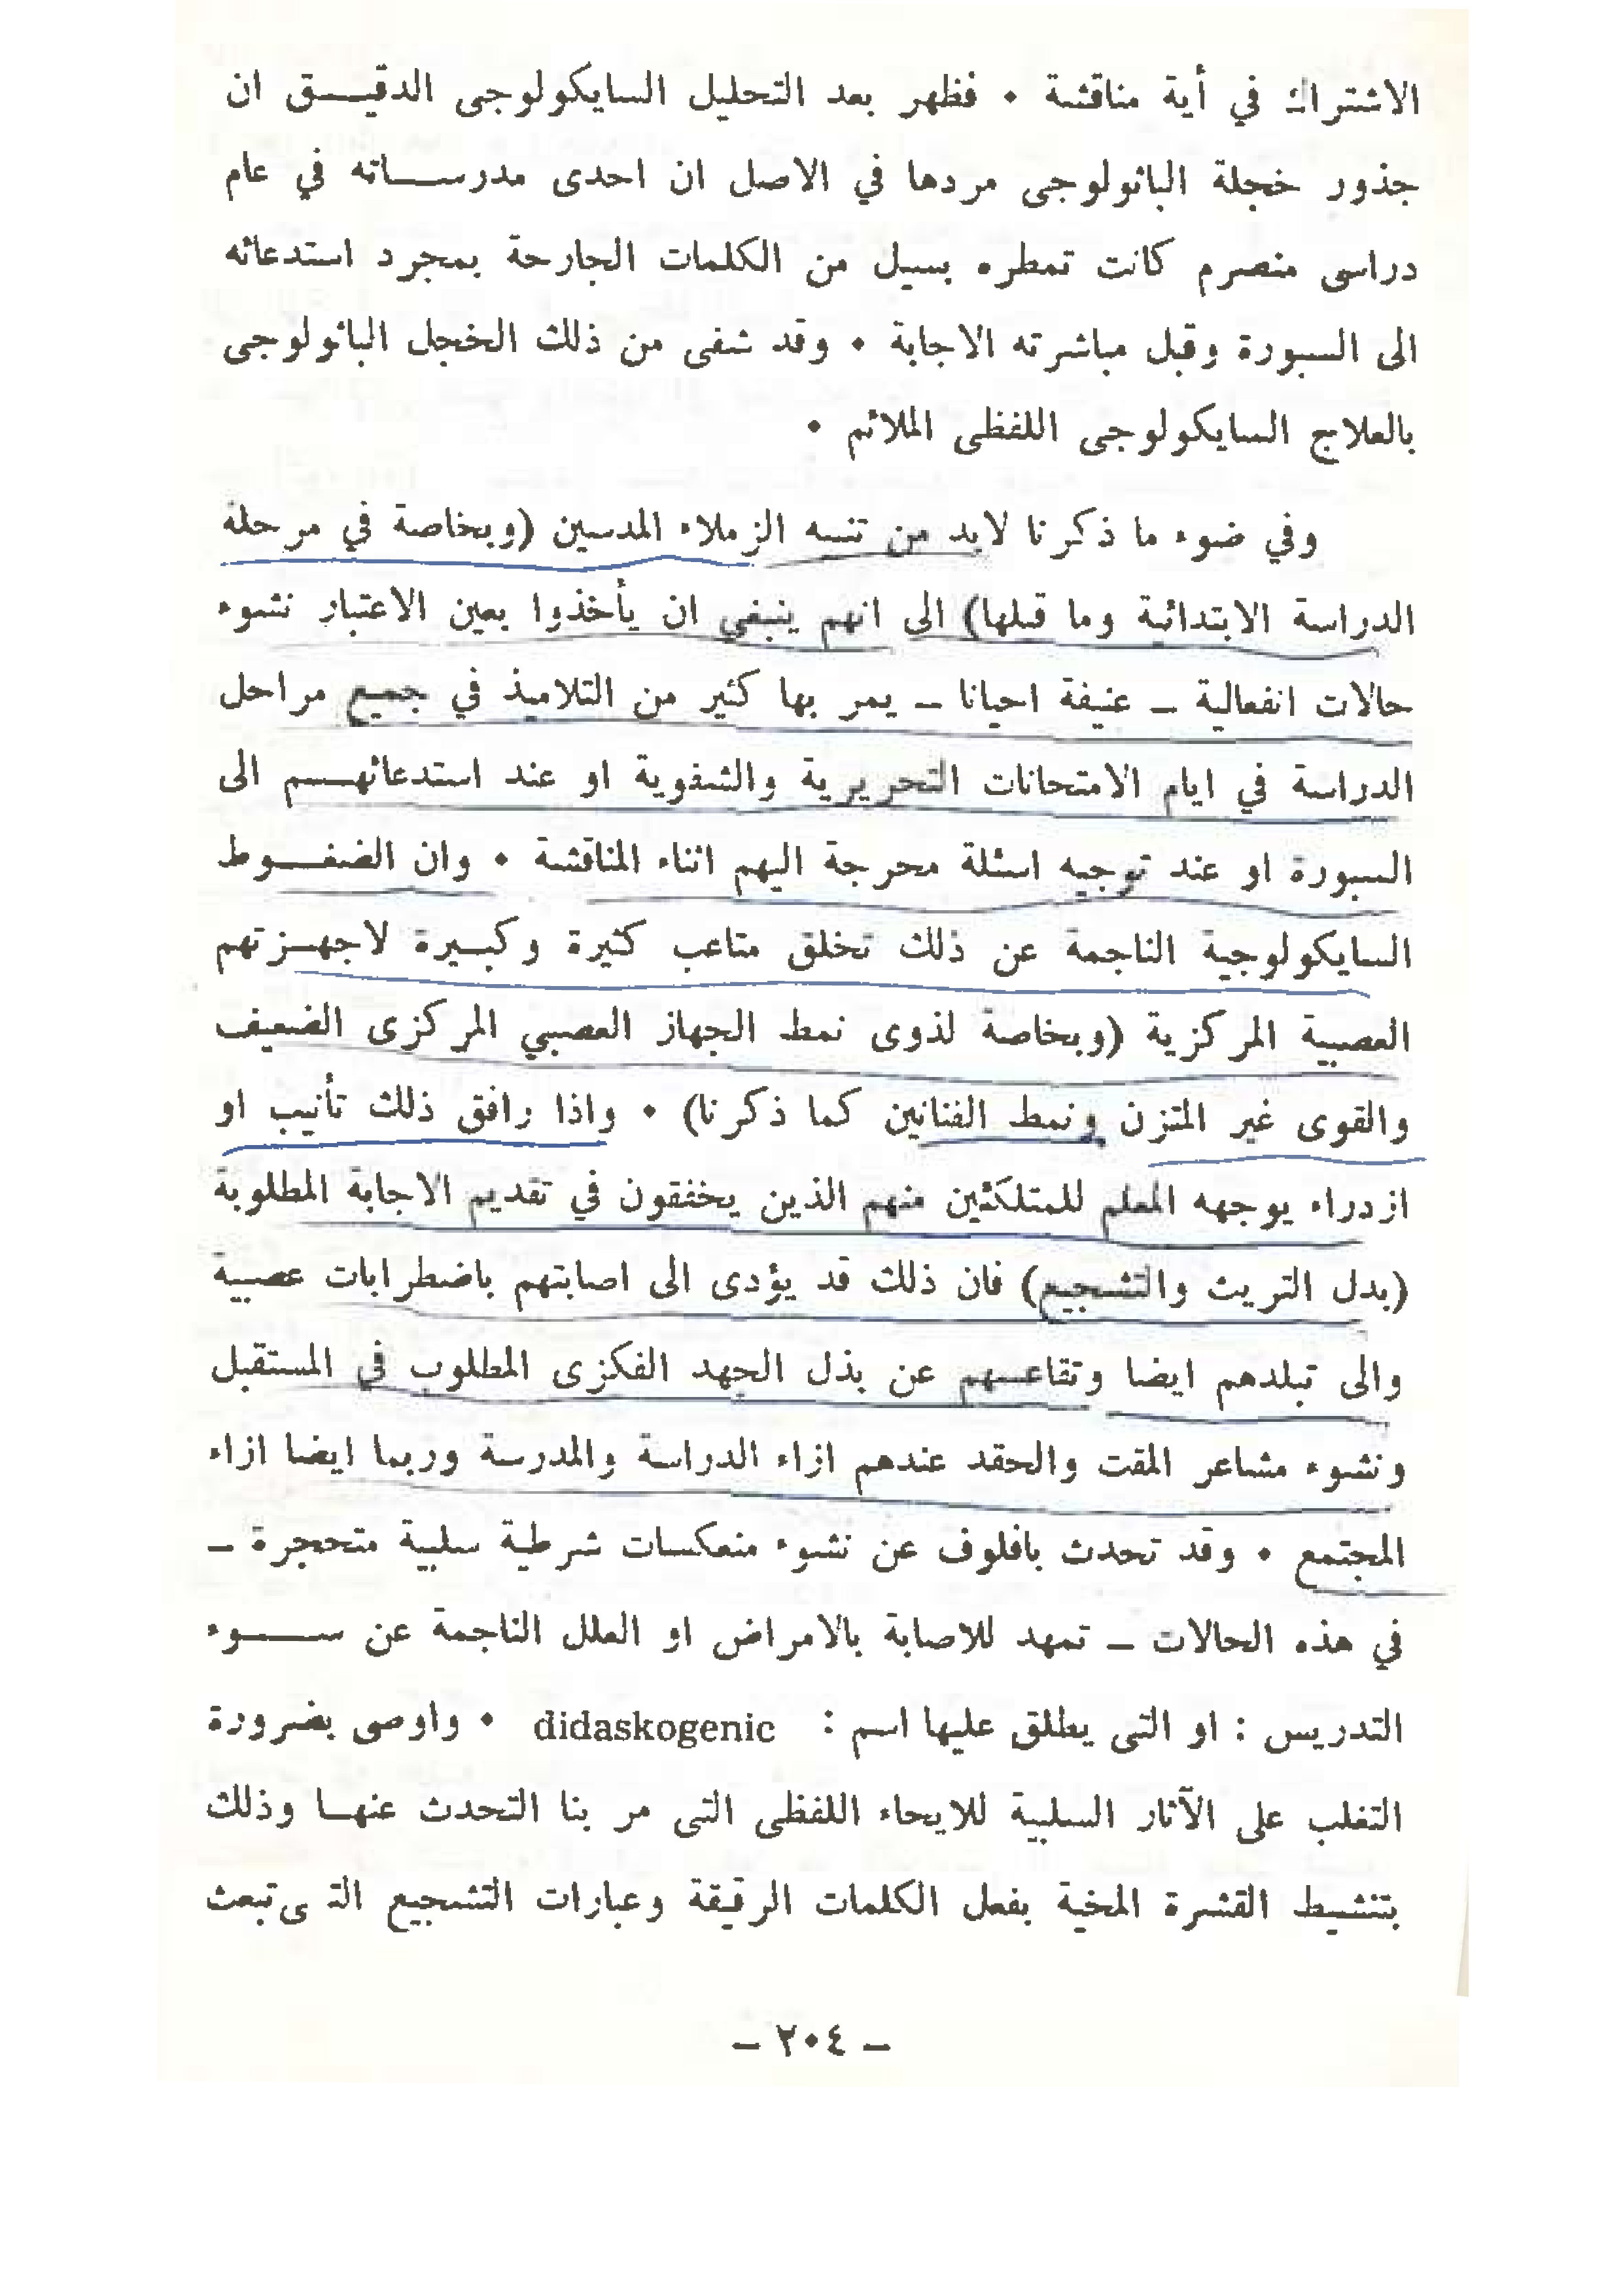 الاشتراك في أية مناقشة • فظهر بعد التحليل السايكولوجى الدقيــق ان
جذور خجلة الباثولوجى مردها في الاصل ان احدى مدرســاته في عام
دراسى منصرم كانت تمطره بسيل من الكلمات الجارحة بمجرد استدعائه
الى السبورة وقبل مباشرته الاجابة • وقد شفى من ذلك الخجل الباثولوجى
بالعلاج السايكولوجى اللفظى الملائم •
وفي ضوء ما ذكرنا لابد من تنبيه الزملاء المدسين (وبخاصة في مرحلة
الدراسة الابتدائية وما قبلها) الى انهم ينبغي ان يأخذوا بعين الاعتبار نشوء
حالات انفعالية – عنيفة احيانا – يمر بها كثير من التلاميذ في جميع مراحل
الدراسة في ايام الامتحانات التحريرية والشفوية او عند استدعائهــم الى
السبورة او عند توجيه اسئلة محرجة اليهم اثناء المناقشة • وان الضغــوط
السايكولوجية الناجمة عن ذلك تخلق متاعب كثيرة وكبــيرة لاجهــزتهم
العصبية المركزية (وبخاصة لذوى نمط الجهاز العصبي المركزى الضعيف
والقوى غير المتزن ونمط الفنانين كما ذكرنا) • واذا رافق ذلك تأنيب او
ازدراء يوجهه المعلم للمتلكئين منهم الذين يخفقون في تقديم الاجابة المطلوبة
(بدل التريث والتشجيع) فان ذلك قد يؤدى الى اصابتهم باضطرابات عصبية
والى تبلدهم ايضا وتقاعسهم عن بذل الجهد الفكرى المطلوب في المستقبل
ونشوء مشاعر المقت والحقد عندهم ازاء الدراسة والمدرسة وربما ايضا ازاء
المجتمع • وقد تحدث بافلوف عن نشوء منعكسات شرطية سلبية متحجرة –
في هذه الحالات – تمهد للاصابة بالامراض او العلل الناجمة عن ســـوء
التدريس : او التى يطلق عليها اسم : didaskogenic • واوصى بضرورة
التغلب على الآثار السلبية للايحاء اللفظى التى مر بنا التحدث عنهــا وذلك
بتنشيط القشرة المخية بفعل الكلمات الرقيقة وعبارات التشجيع التـ ى تبعث
– ٢٠٤ –